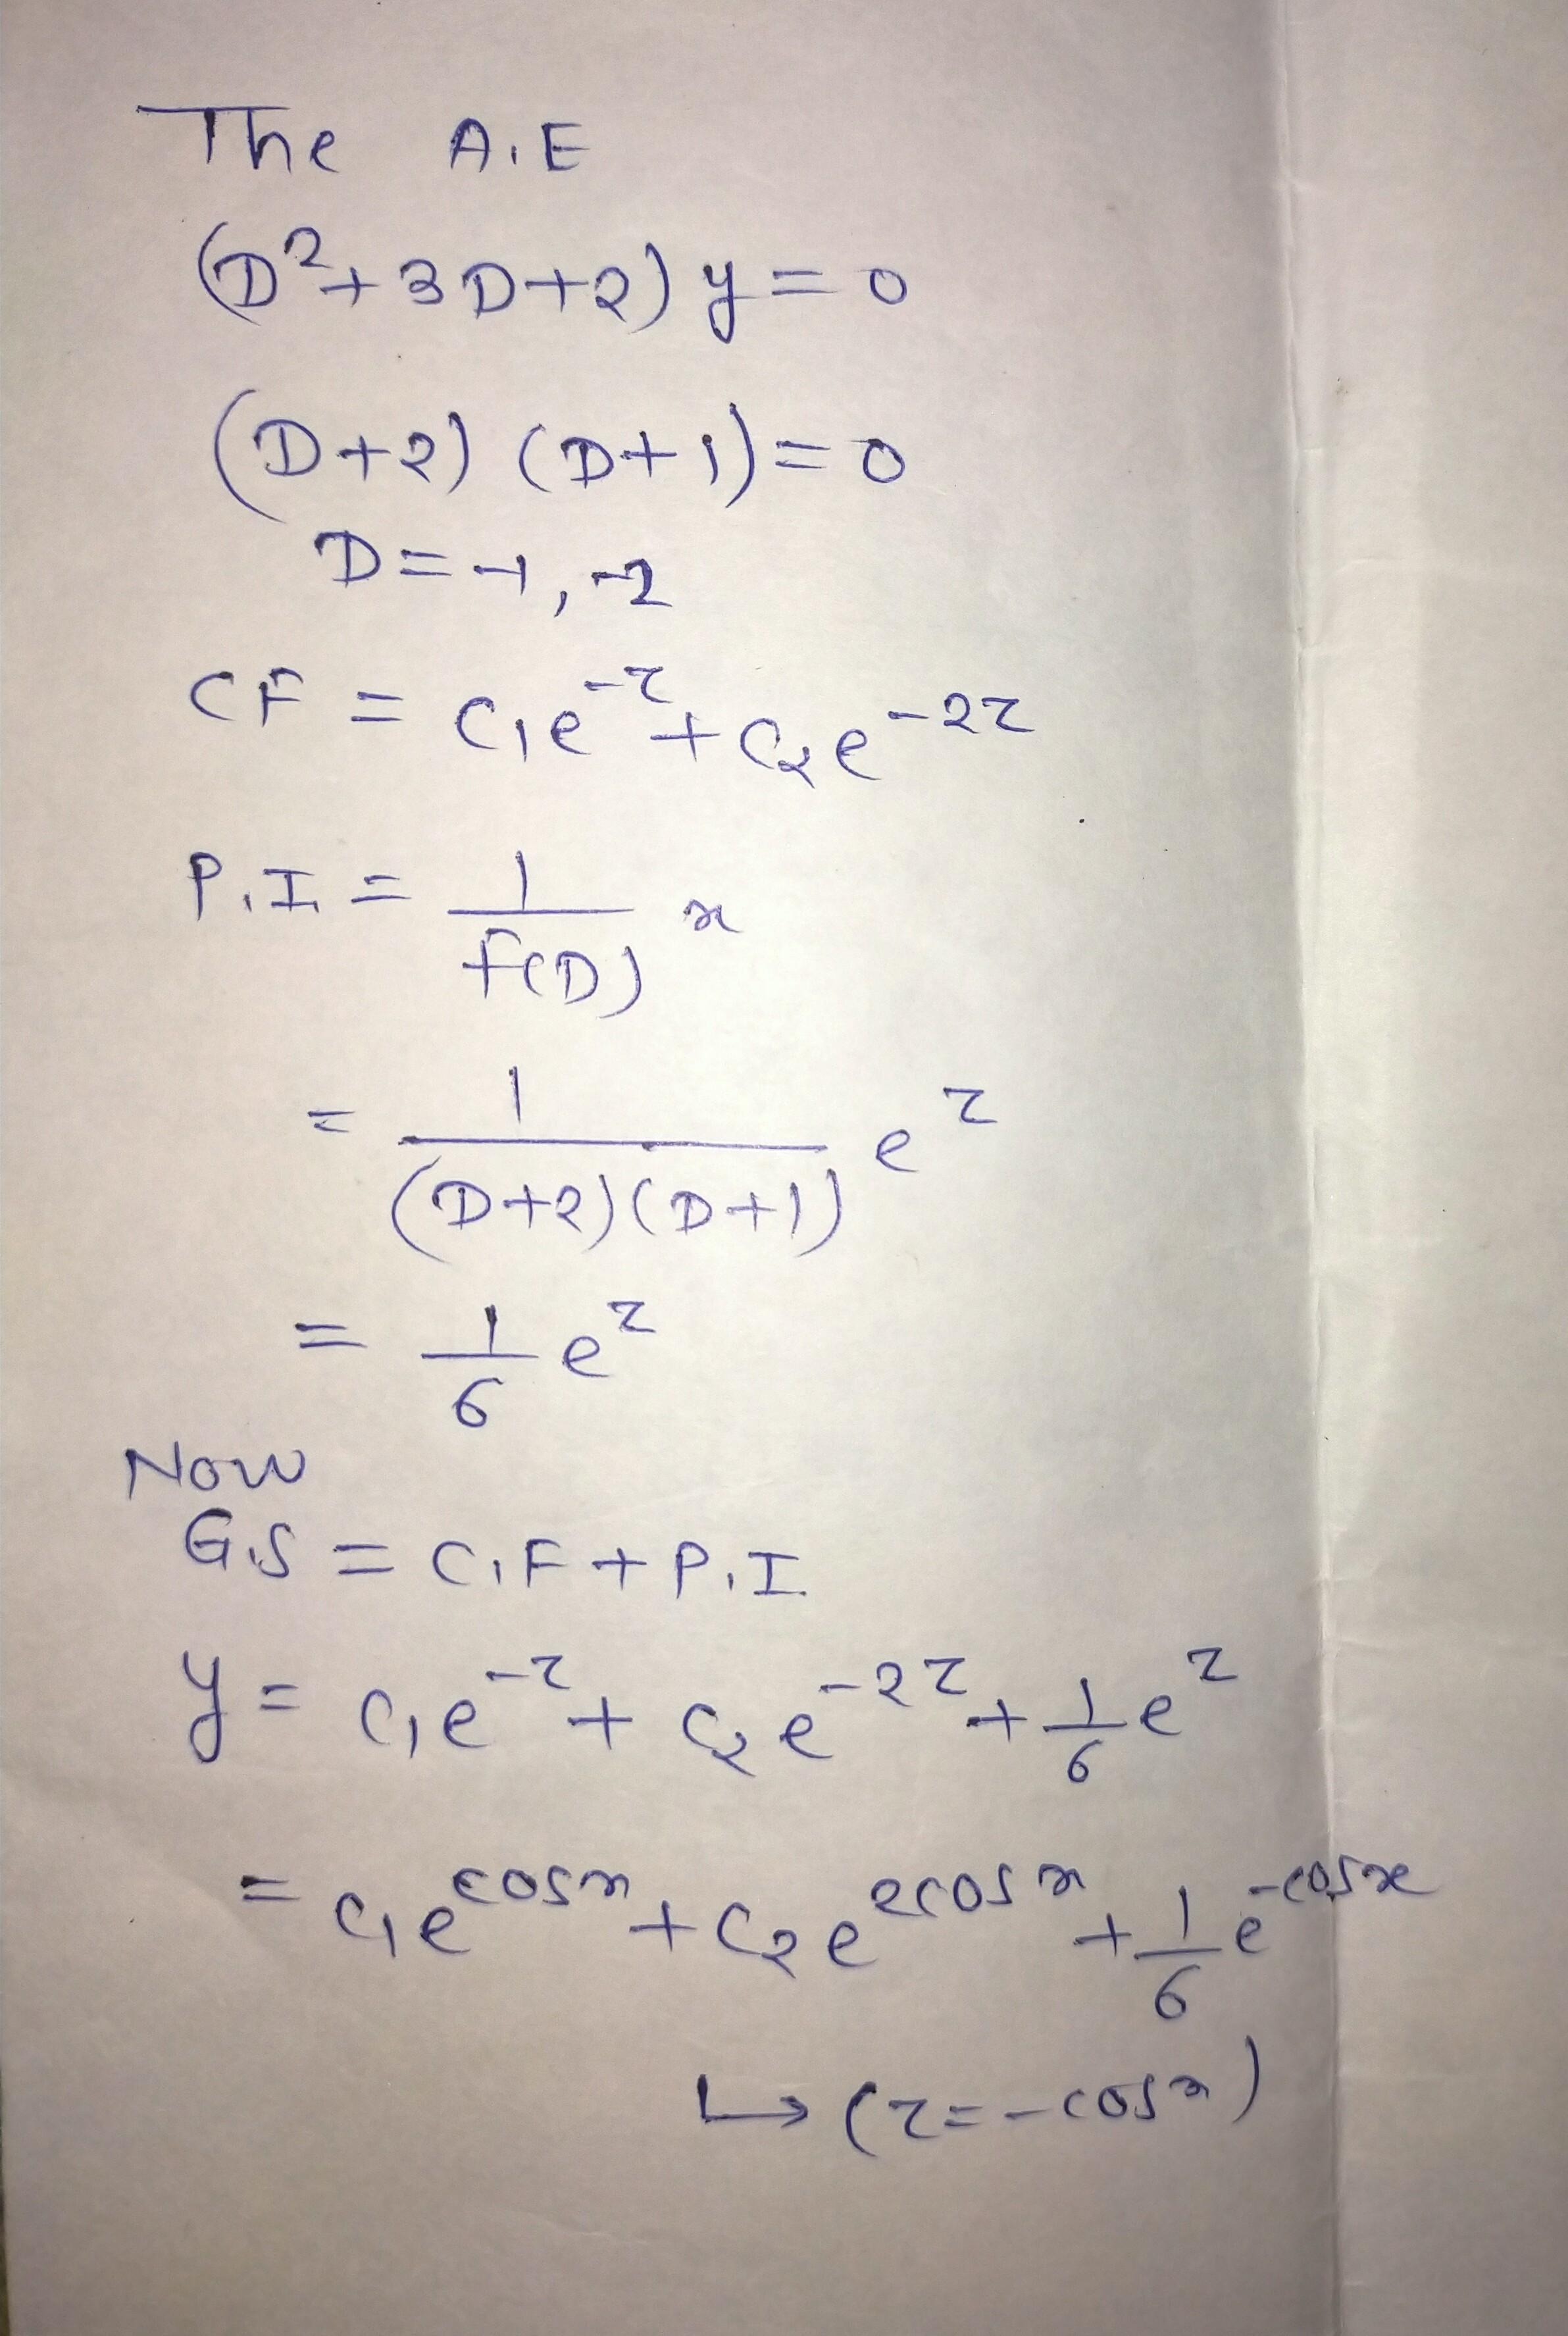 The A.E
(D²+3D+2) y = 0
(D+2) (D+1) = 0
D = -1, -2
CF = C₁e^-z + C₂e^-2z
P.I. = 1/f(D) x
= 1/(D+2)(D+1) e^z
= 1/6 e^z
Now
G.S = C.F + P.I.
y = C₁e^-z + C₂e^-2z + 1/6 e^z
= C₁e^cosx + C₂e^2cosx + 1/6 e^-cosx
↳ (z = -cosx)